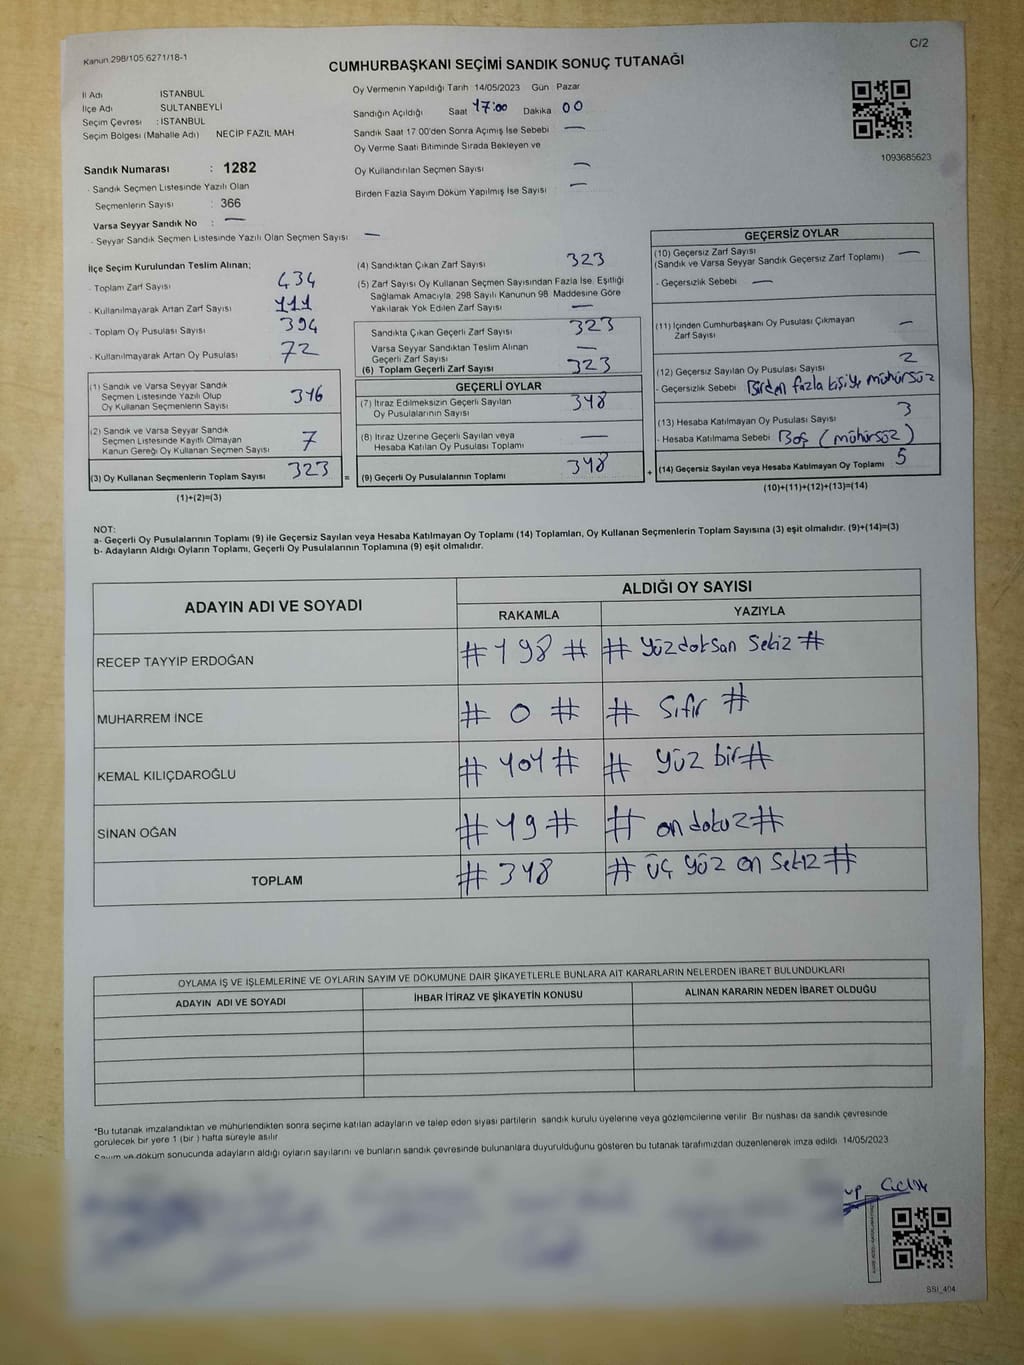 C/2
Kanun 298/105 6271/18-1
CUMHURBAŞKANI SEÇİMİ SANDIK SONUÇ TUTANAĞI
İl Adı İSTANBUL
İlçe Adı SULTANBEYLİ
Seçim Çevresi : İSTANBUL
Seçim Bölgesi (Mahalle Adı) NECİP FAZIL MAH
Sandık Numarası : 1282
- Sandık Seçmen Listesinde Yazılı Olan
Seçmenlerin Sayısı : 366
Varsa Seyyar Sandık No : —
- Seyyar Sandık Seçmen Listesinde Yazılı Olan Seçmen Sayısı —
Oy Vermenin Yapıldığı Tarih 14/05/2023 Gün Pazar
Sandığın Açıldığı Saat 17:00 Dakika 00
Sandık Saat 17 00'den Sonra Açımış İse Sebebi —
Oy Verme Saati Bitiminde Sırada Bekleyen ve
Oy Kullandırılan Seçmen Sayısı —
Birden Fazla Sayım Döküm Yapılmış İse Sayısı —
1093685623
İlçe Seçim Kurulundan Teslim Alınan;
- Toplam Zarf Sayısı 434
- Kullanılmayarak Artan Zarf Sayısı 111
- Toplam Oy Pusulası Sayısı 394
- Kullanılmayarak Artan Oy Pusulası 72
(1) Sandık ve Varsa Seyyar Sandık
Seçmen Listesinde Yazılı Olup
Oy Kullanan Seçmenlerin Sayısı 316
(2) Sandık ve Varsa Seyyar Sandık
Seçmen Listesinde Kayıtlı Olmayan
Kanun Gereği Oy Kullanan Seçmen Sayısı 7
(3) Oy Kullanan Seçmenlerin Toplam Sayısı 323 =
(1)+(2)=(3)
(4) Sandıktan Çıkan Zarf Sayısı 323
(5) Zarf Sayısı Oy Kullanan Seçmen Sayısından Fazla İse, Eşitliği
Sağlamak Amacıyla, 298 Sayılı Kanunun 98 Maddesine Göre
Yakılarak Yok Edilen Zarf Sayısı —
Sandıkta Çıkan Geçerli Zarf Sayısı 323
Varsa Seyyar Sandıktan Teslim Alınan
Geçerli Zarf Sayısı —
(6) Toplam Geçerli Zarf Sayısı 323
GEÇERLİ OYLAR
(7) İtiraz Edilmeksizin Geçerli Sayılan
Oy Pusulalarının Sayısı 318
(8) İtiraz Üzerine Geçerli Sayılan veya
Hesaba Katılan Oy Pusulası Toplamı —
(9) Geçerli Oy Pusulalarının Toplamı 318 +
GEÇERSİZ OYLAR
(10) Geçersiz Zarf Sayısı
(Sandık ve Varsa Seyyar Sandık Geçersiz Zarf Toplamı) —
- Geçersizlik Sebebi —
(11) İçinden Cumhurbaşkanı Oy Pusulası Çıkmayan
Zarf Sayısı —
(12) Geçersiz Sayılan Oy Pusulası Sayısı 2
- Geçersizlik Sebebi Birden fazla kişiye mühürsüz
(13) Hesaba Katılmayan Oy Pusulası Sayısı 3
- Hesaba Katılmama Sebebi Boş (mühürsüz)
(14) Geçersiz Sayılan veya Hesaba Katılmayan Oy Toplamı 5
(10)+(11)+(12)+(13)=(14)
NOT:
a- Geçerli Oy Pusulalarının Toplamı (9) ile Geçersiz Sayılan veya Hesaba Katılmayan Oy Toplamı (14) Toplamları, Oy Kullanan Seçmenlerin Toplam Sayısına (3) eşit olmalıdır. (9)+(14)=(3)
b- Adayların Aldığı Oyların Toplamı, Geçerli Oy Pusulalarının Toplamına (9) eşit olmalıdır.
ADAYIN ADI VE SOYADI ALDIĞI OY SAYISI
RAKAMLA YAZIYLA
RECEP TAYYIP ERDOĞAN # 198 # # yüzdoksan sekiz #
MUHARREM İNCE # 0 # # sıfır #
KEMAL KILIÇDAROĞLU # 101 # # yüz bir #
SİNAN OĞAN # 19 # # on dokuz #
TOPLAM # 318 # üç yüz on sekiz #
OYLAMA İŞ VE İŞLEMLERİNE VE OYLARIN SAYIM VE DÖKÜMÜNE DAİR ŞİKAYETLERLE BUNLARA AİT KARARLARIN NELERDEN İBARET BULUNDUKLARI
ADAYIN ADI VE SOYADI İHBAR İTİRAZ VE ŞİKAYETİN KONUSU ALINAN KARARIN NEDEN İBARET OLDUĞU
*Bu tutanak imzalandıktan ve mühürlendikten sonra seçime katılan adayların ve talep eden siyasi partilerin sandık kurulu üyelerine veya gözlemcilerine verilir Bir nüshası da sandık çevresinde
görülecek bir yere 1 (bir ) hafta süreyle asılır
Sayım ve döküm sonucunda adayların aldığı oyların sayılarını ve bunların sandık çevresinde bulunanlara duyurulduğunu gösteren bu tutanak tarafımızdan düzenlenerek imza edildi 14/05/2023
SSI_404